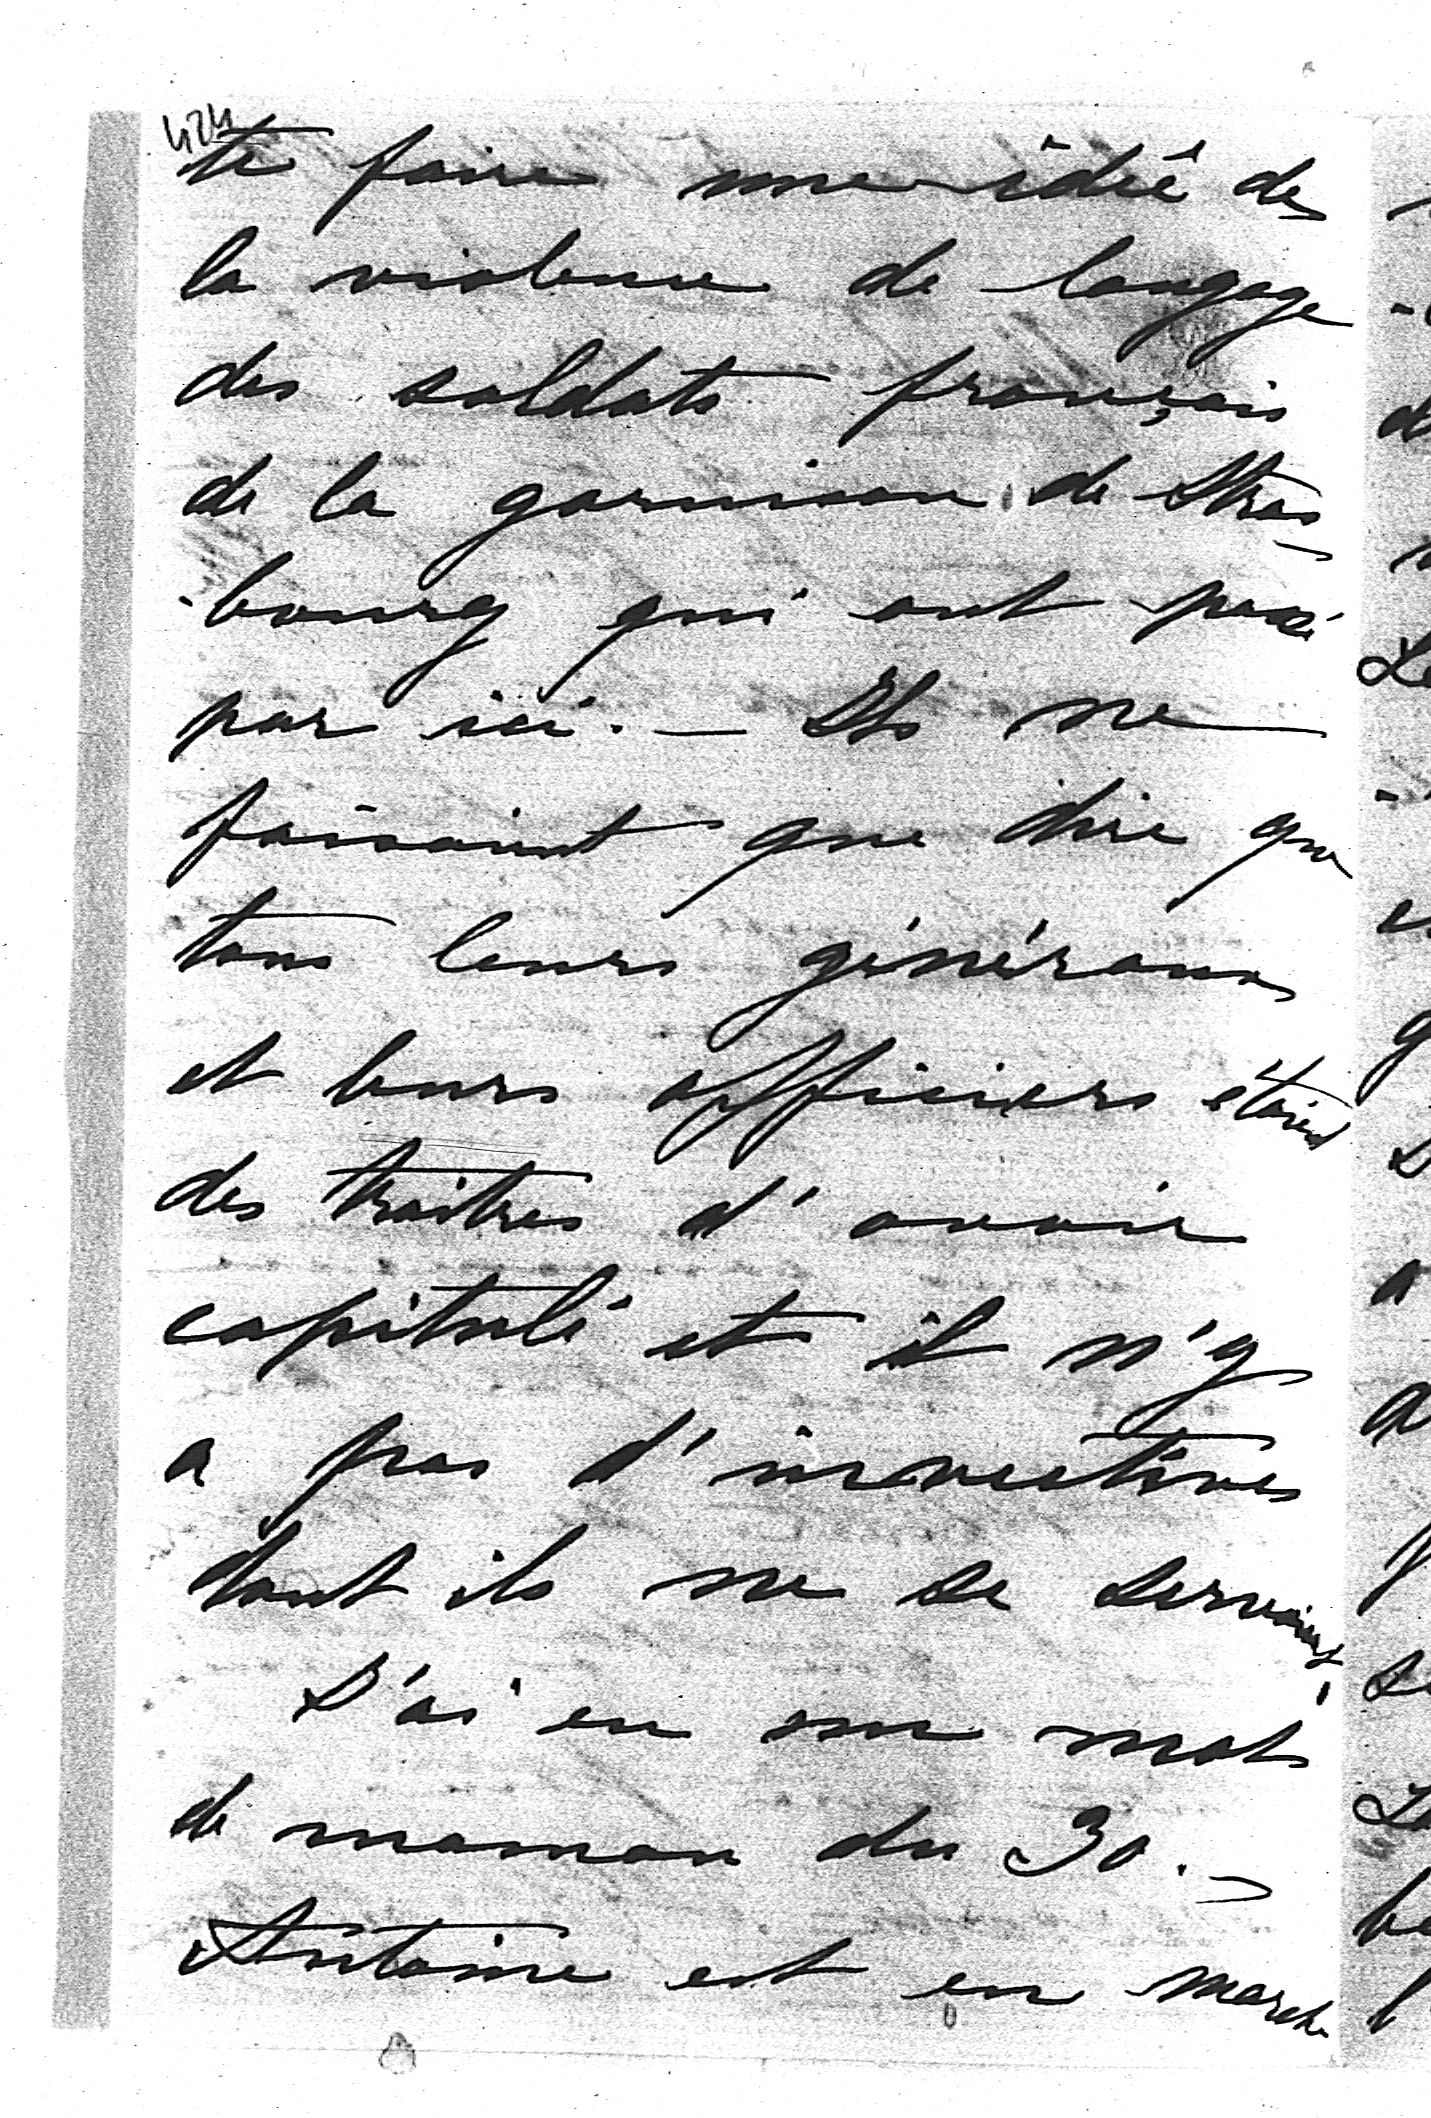 424
te faire une idée de
la violence de langage
des soldats français
de la garnison de Stras
-bourg qui ont passé
par ici. — Ils ne
faisaient que dire que
tous leurs généraux
et leurs officiers étaient
des traîtres d'avoir
capitulé et il n'y
a pas d'invectives
dont ils ne se servaient.
J'ai eu un mot
de maman du 30. —
Antoine est en marche